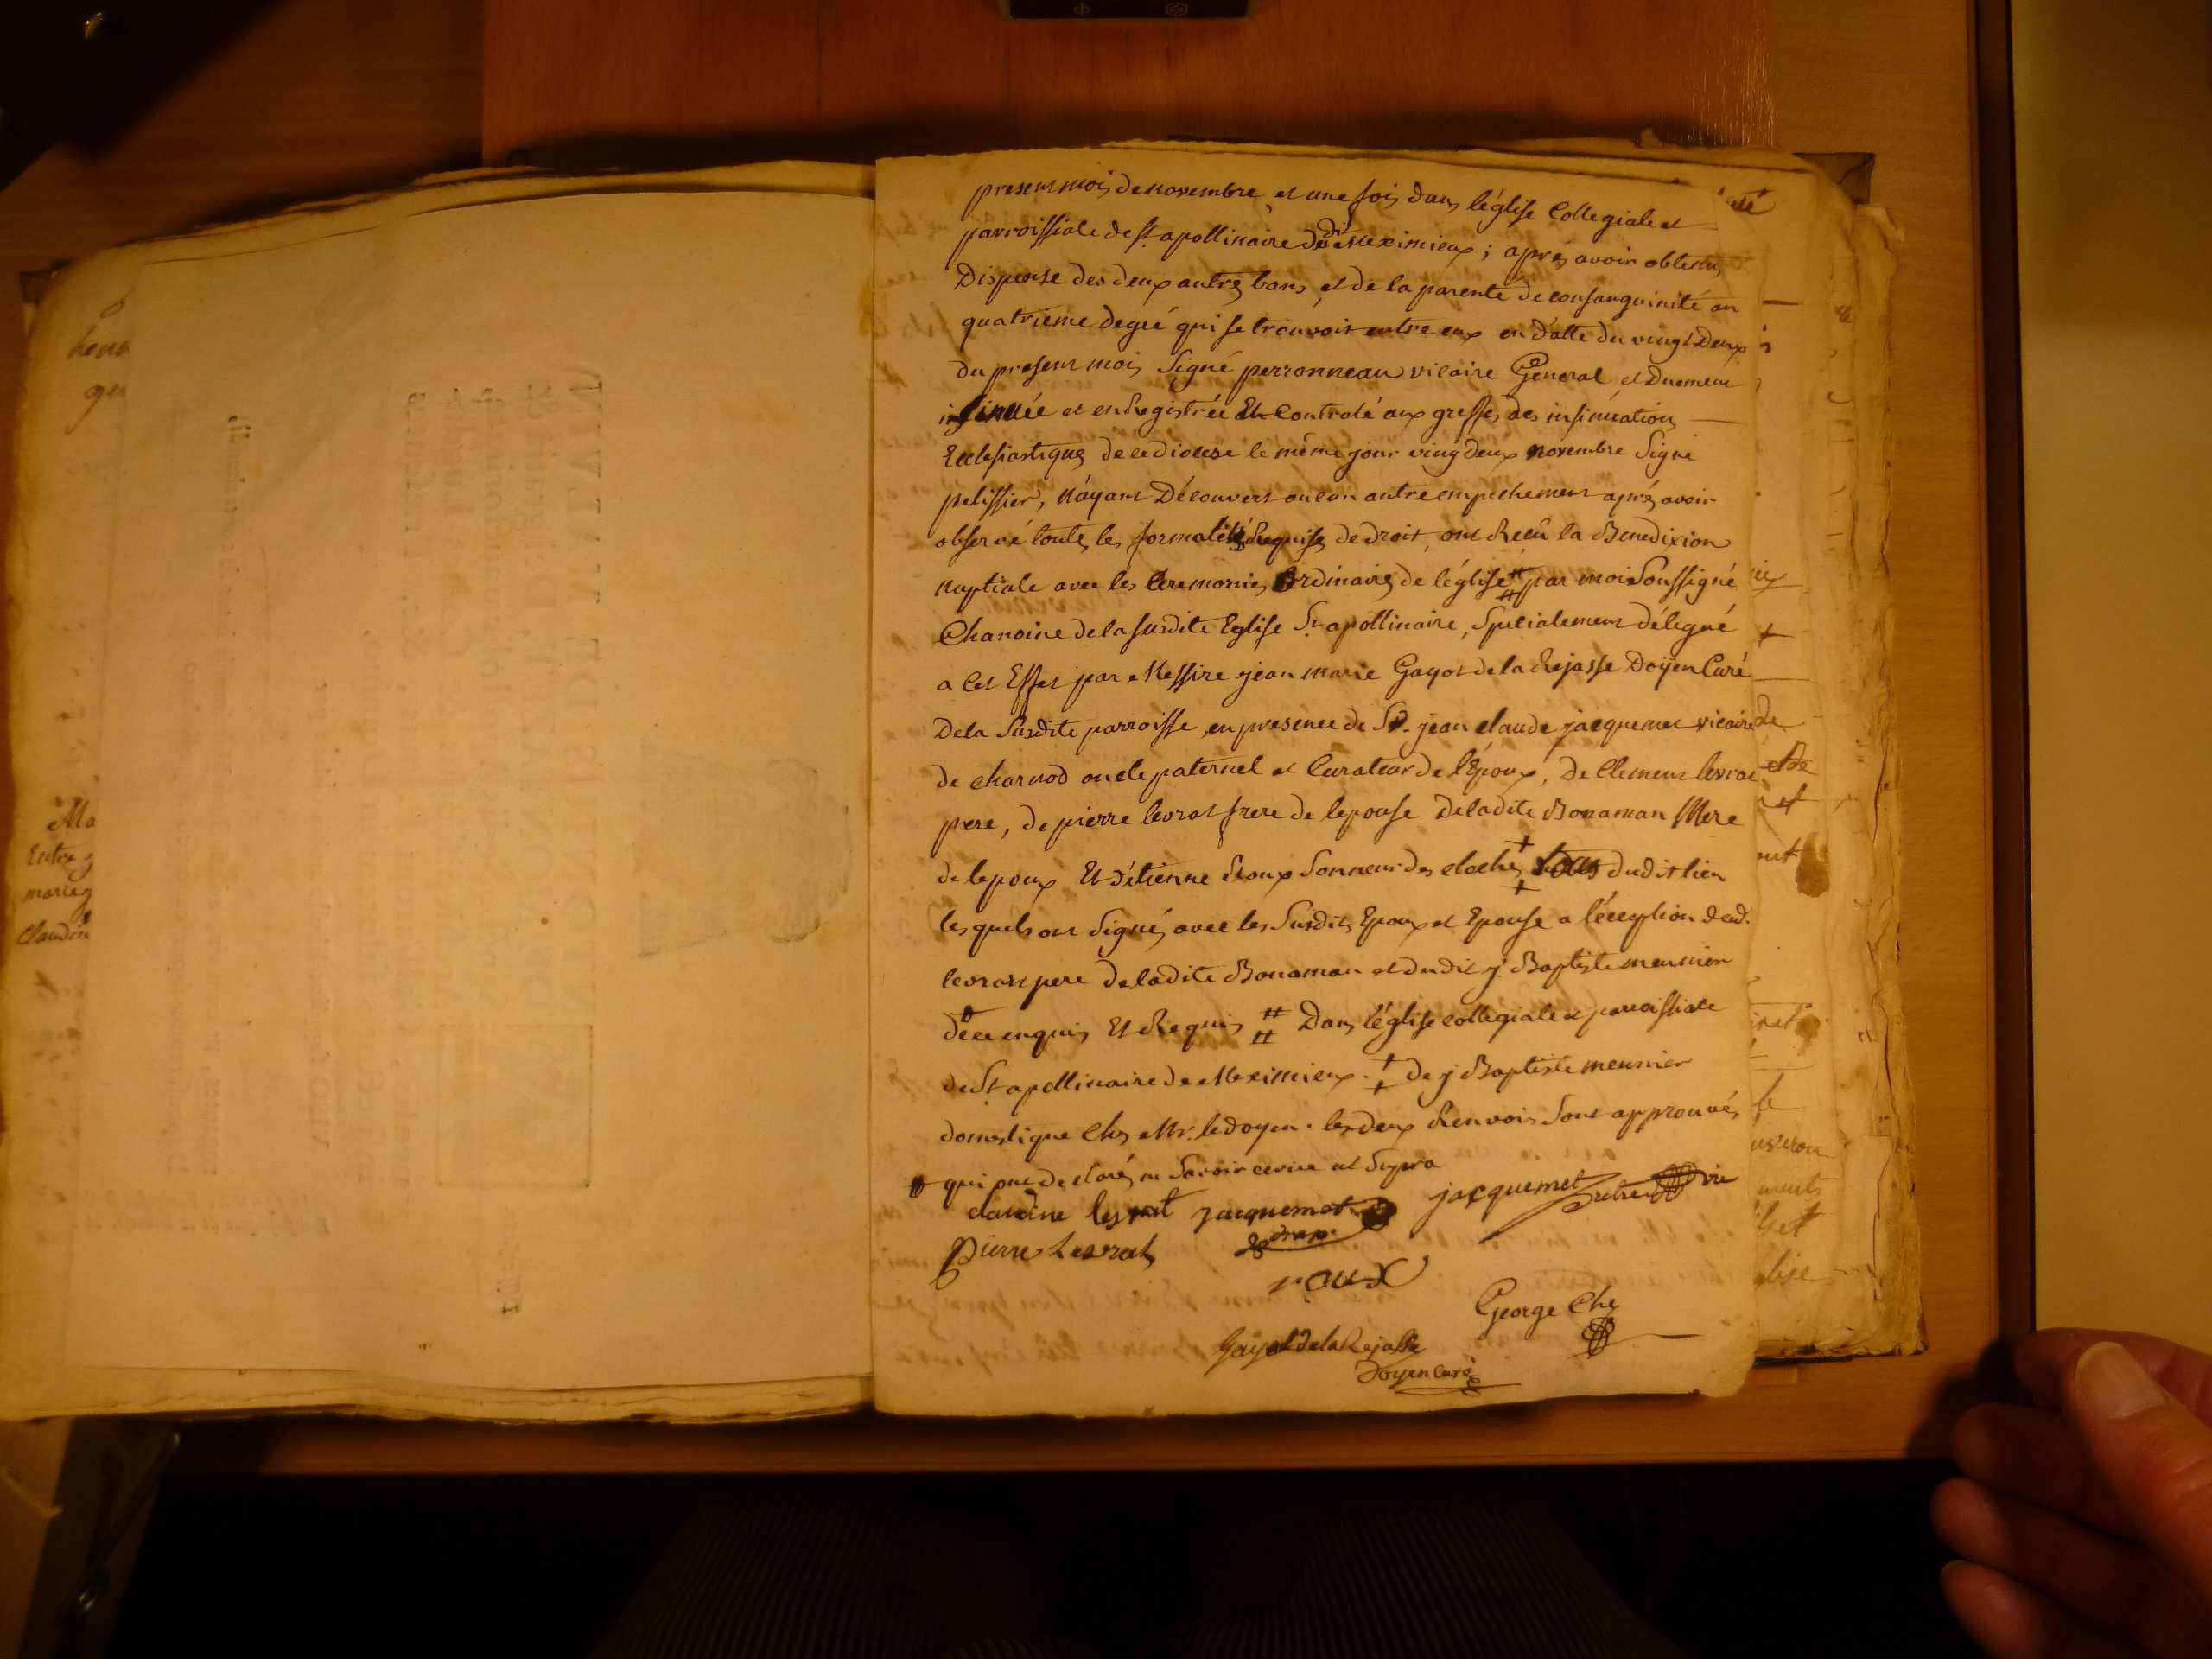 present mois de novembre et une fois dans l'église Collegiale et
parroissiale de St. apollinaire dudit Meximieux ; aprés avoir obtenus
Dispense des deux autres bans, et de la parente de consanguinité au
quatrieme degré qui se trouvoit entre eux en datte du vingt Deux
du present mois Signé perronneau vicaire General et Duement
insinuée et enRegistrée Et Controlé aux greffes des insinuations
Ecclesiastiques de ce diocese le même jour vingdeux novembre Signé
pelissier, N'áyant Découvert aucun autre empechement aprés avoir
observé toutes les formalités Requises de droit, ont Reçû la Benedixion
Nuptiale avec les Ceremonies Ordinaires de l'église # par moi Soussigné
Chanoine de la susdite Eglise St. apollinaire, Specialement délegué
a Cet Effet par Messire jean marie Gayot de la Rejasse Doÿen Curé
De la Susdite parroisse, en presence de Sr. jean claude jacquemet vicaire
de charnod oncle paternel et Curateur de l'Epoux, de Clement levrat
pere, de pierre levrat frere de lepouse De ladite Bonaman Mere
de lepoux Et d'étienne Roux Sonneur des cloches tous dudit lieu
lesquels ont Signés avec les Susdits Epoux et Epouse a l'éception dud.
levrat pere De ladite Bonaman et dudit j. Baptiste meunier
de ce enquis Et Requis # Dans l'église collegiale et parroissiale
de St. apollinaire de Meximieux. ‡ de j Baptiste meunier
domestique Chez Mr. le doyen. les deux Renvois Sont approuvés
# qui ont declarés ne Savoir ecrire ut Supra
claudine levrat jacquemet jacquemet prêtre vic
Pierre Levrat
roux
George Che
Gayot de la Rejasse
Doyen Curé